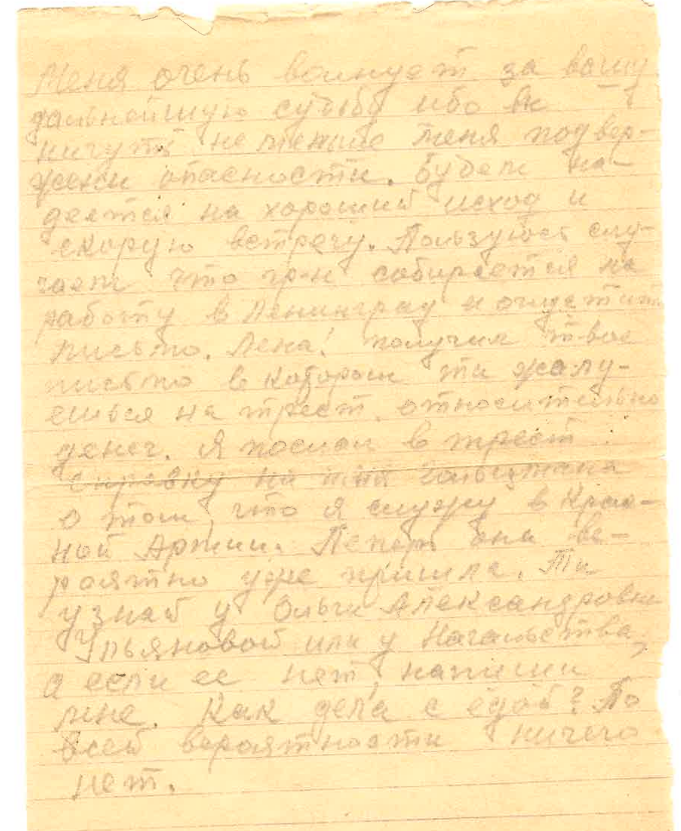 Меня очень волнует за вашу
дальнейшую судьбу ибо вы
ничуть не меньше меня подвер-
жены опасности. Будем на-
деятся на хороший исход и
скорую встречу. Пользуюсь слу-
чаем что гр-н собирается на
работу в Ленинград и опустит
письмо. Лена! получил твое
письмо в котором ты жалу-
ешься на трест относительно
денег. Я послал в трест
справку на имя
о том что я служу в Крас-
ной Армии. Теперь она ве-
роятно уже пришла. Ты
узнай у Ольги Александровны
Ульяновой или у Начальства,
а если ее нет напиши
мне. Как дела с едой? По
всей вероятности ничего
нет.